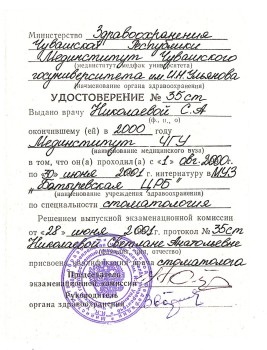 Министерство Здравоохранения
Чувашской Республики
Мединститут Чувашского
(мединститут, медфак университета)
госуниверситета им. И.Н. Ульянова
(наименование органа здравоохранения)
УДОСТОВЕРЕНИЕ № 35 ст
Выдано врачу Николаевой С.А
(ф., и., о)
окончившему (ей) в 2000 году
Мединститут ЧГУ
(наименование медицинского вуза)
в том, что он(а) проходил(а) с «1» авг. 2000г.
по 30 июня 2001 г. интернатуру в МУЗ
"Батыревская ЦРБ"
(наименование учреждения здравоохранения)
по специальности стоматология
Решением выпускной экзаменационной комиссии
от «28» июня 2001г. протокол № 35ст
Николаевой Светлане Анатольевне
(фамилия, имя, отчество)
присвоена квалификация врача стоматолога
Председатель
экзаменационной комиссии
Руководитель
органа здравоохранения